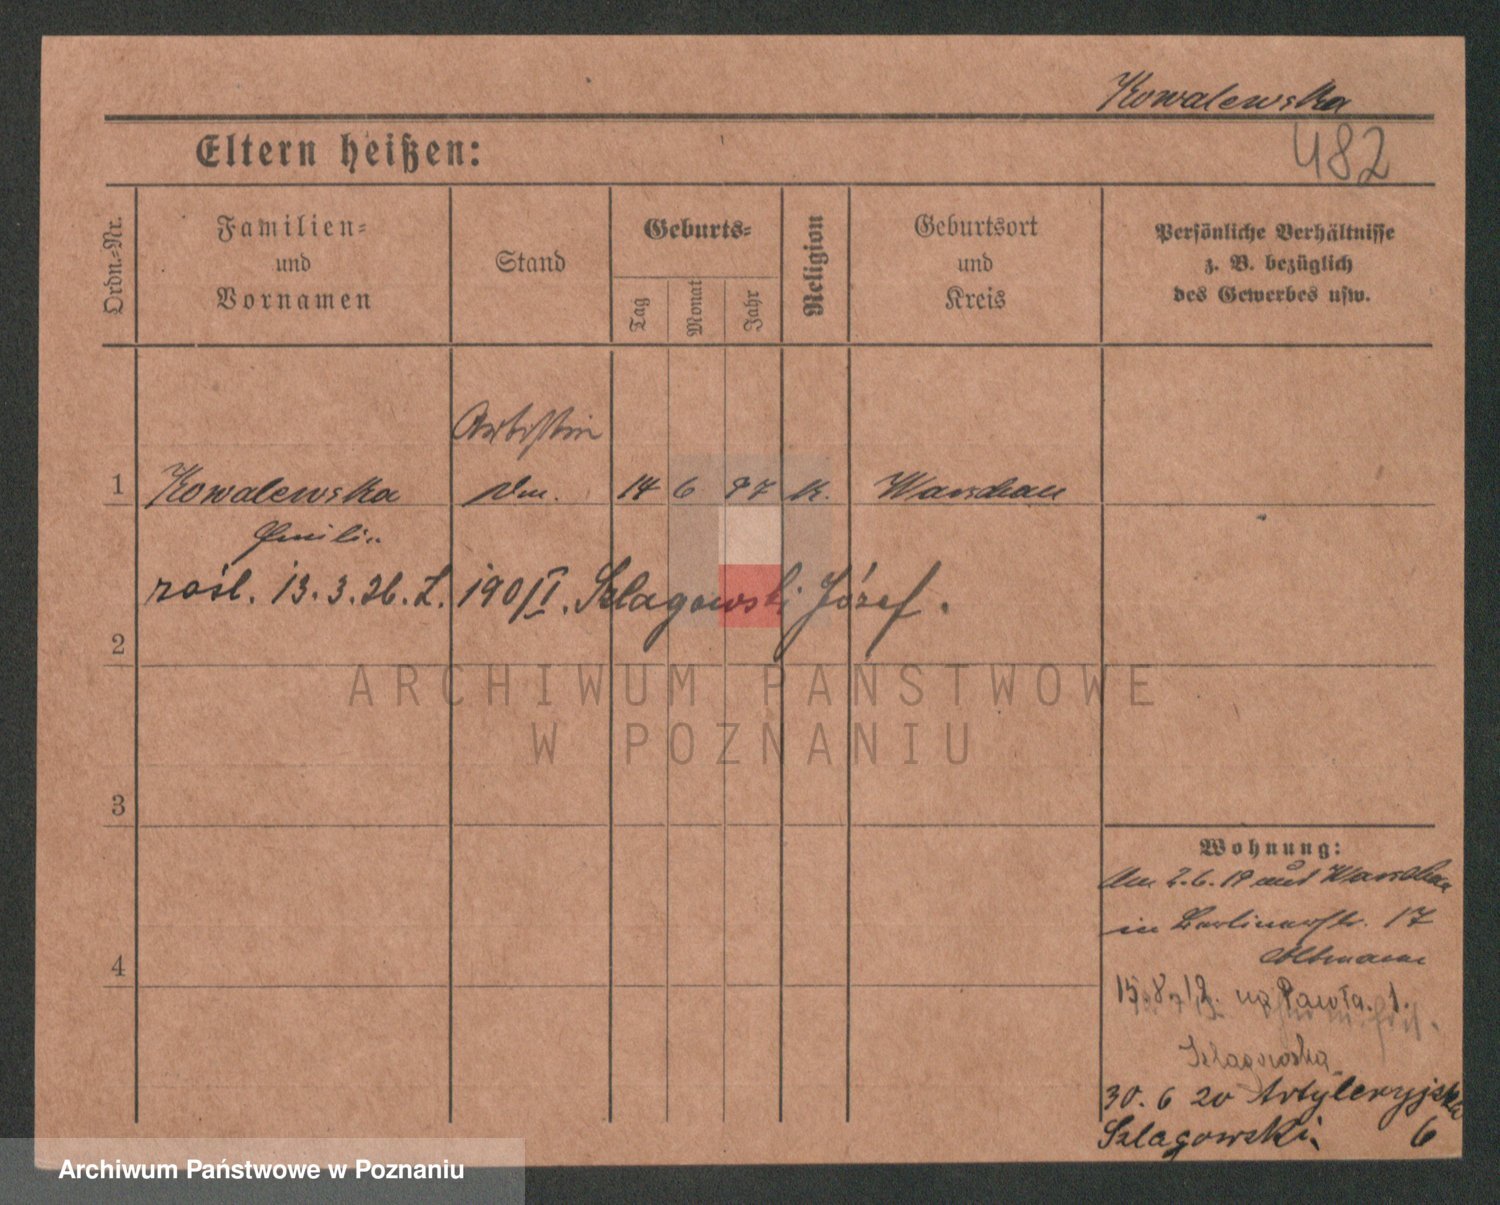 Kowalewska
482
Eltern heißen:
Ordn.-Nr.
Familien-
und
Vornamen
Stand
Geburts-
Tag
Monat
Jahr
Religion
Geburtsort
und
Kreis
Persönliche Verhältnisse
z. B. bezüglich
des Gewerbes usw.
Artistin
1 Kowalewska 14 6 97 k. Warschau
rośl. 13.3.26. L. 190/I. Szlagowski Józef.
2
ARCHIWUM PAŃSTWOWE
W POZNANIU
3
Wohnung:
Am 2.6.19 aus Warschau
in Berlinerstr. 17
Altmann
4
15.8.19. na Pawła. 1.
Szlagowska
30.6 20 Artyleryjska
Szlagowski 6
Archiwum Państwowe w Poznaniu